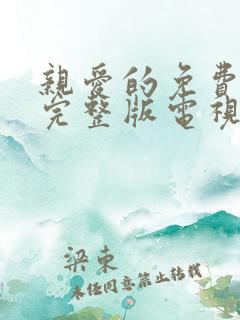 親愛的免費
完整版電視
梁東
未經同意禁止轉載